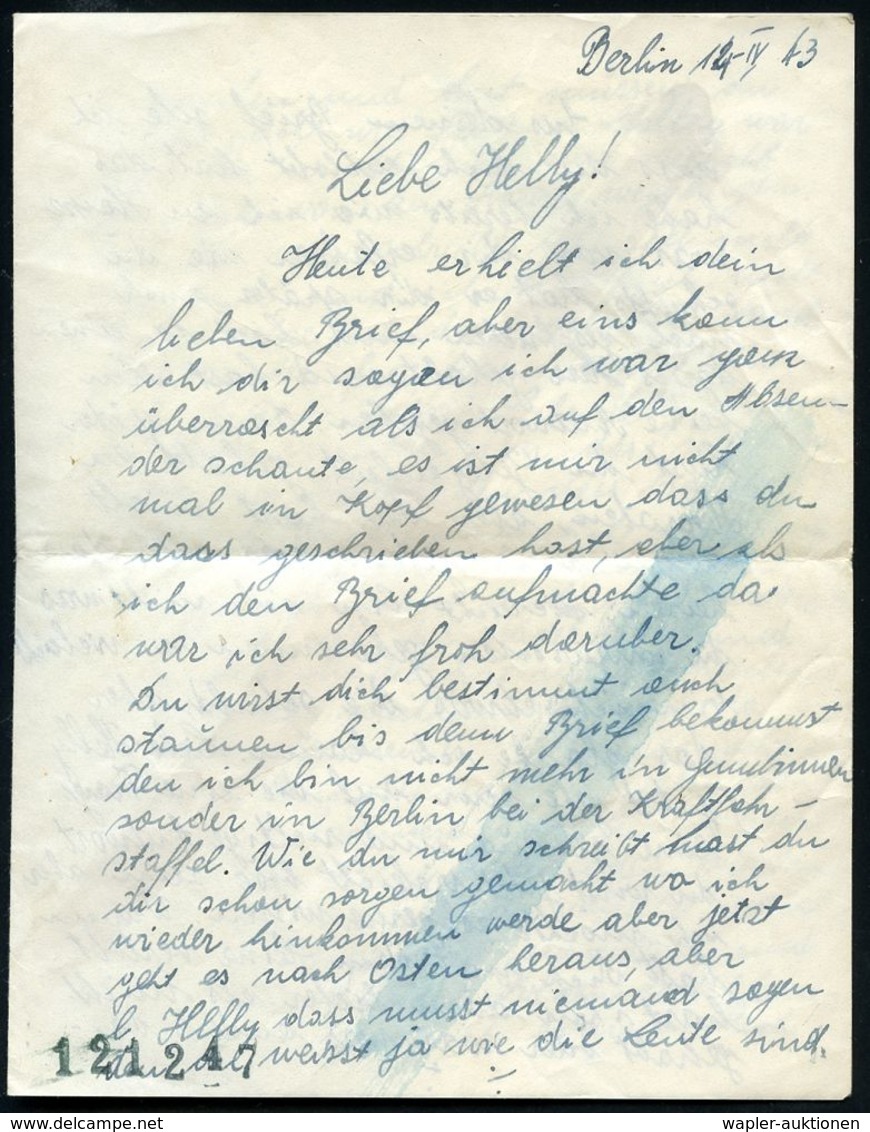 Berlin 12-IV, 43
Liebe Helly!
Heute erhielt ich dein
lieben Brief, aber eins kann
ich dir sagen ich war ganz
überrascht als ich auf den Absen-
der schaute, es ist mir nicht
mal in Kopf gewesen dass du
dass geschrieben hast, aber als
ich den Brief aufmachte da
war ich sehr froh darüber.
Du wirst dich bestimmt auch
staunen bis denn Brief bekommst
den ich bin nicht mehr in Gumbinnen
sonder in Berlin bei der Kraftfahr-
staffel. Wie du mir schreibt hast du
dir schon sorgen gemacht wo ich
wieder hinkommen werde aber jetzt
geht es nach Osten heraus, aber
l. Helly dass musst niemand sagen
den du weisst ja wie die Leute sind.
121247
delcampe.net
wapler-auktionen